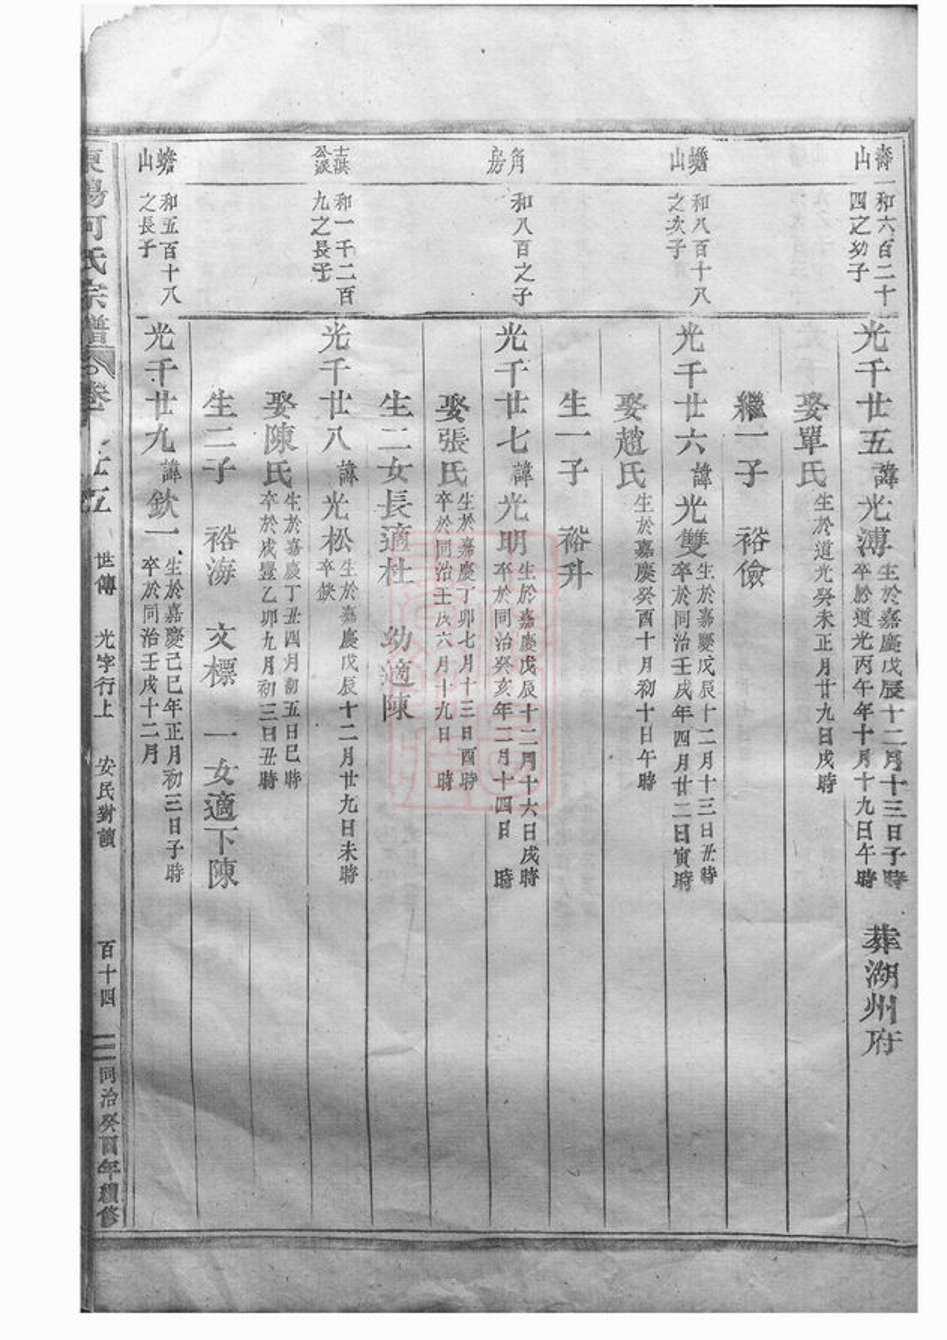 壽山
和六百二十
四之幼子
光千廿五 諱光溥
生於嘉慶戊辰十二月十三日子時
卒於道光丙午年十月十九日午時
葬湖州府
娶單氏
生於道光癸未正月廿九日戌時
繼一子 裕儉
蟾山
和八百十八
之次子
光千廿六 諱光雙
生於嘉慶戊辰十二月十三日丑時
卒於同治壬戌年四月廿二日寅時
娶趙氏
生於嘉慶癸酉十月初十日午時
生一子 裕升
角房
和八百之子
光千廿七 諱光明
生於嘉慶戊辰十二月十六日戌時
卒於同治癸亥年二月十四日 時
娶張氏
生於嘉慶丁卯七月十三日酉時
卒於同治壬戌六月十九日 時
生二女長適杜 幼適陳
士淇公派
和一千二百
九之長子
光千廿八 諱光松
生於嘉慶戊辰十二月廿九日未時
卒缺
娶陳氏
生於嘉慶丁丑四月初五日巳時
卒於咸豐乙卯九月初三日丑時
生二子 裕海 文標 一女適下陳
蟾山
和五百十八
之長子
光千廿九 諱欽一
生於嘉慶己巳年正月初三日子時
卒於同治壬戌十二月
東陽何氏宗譜 卷 世傳 光字行上 安民對讀 百十四 同治癸酉年續修